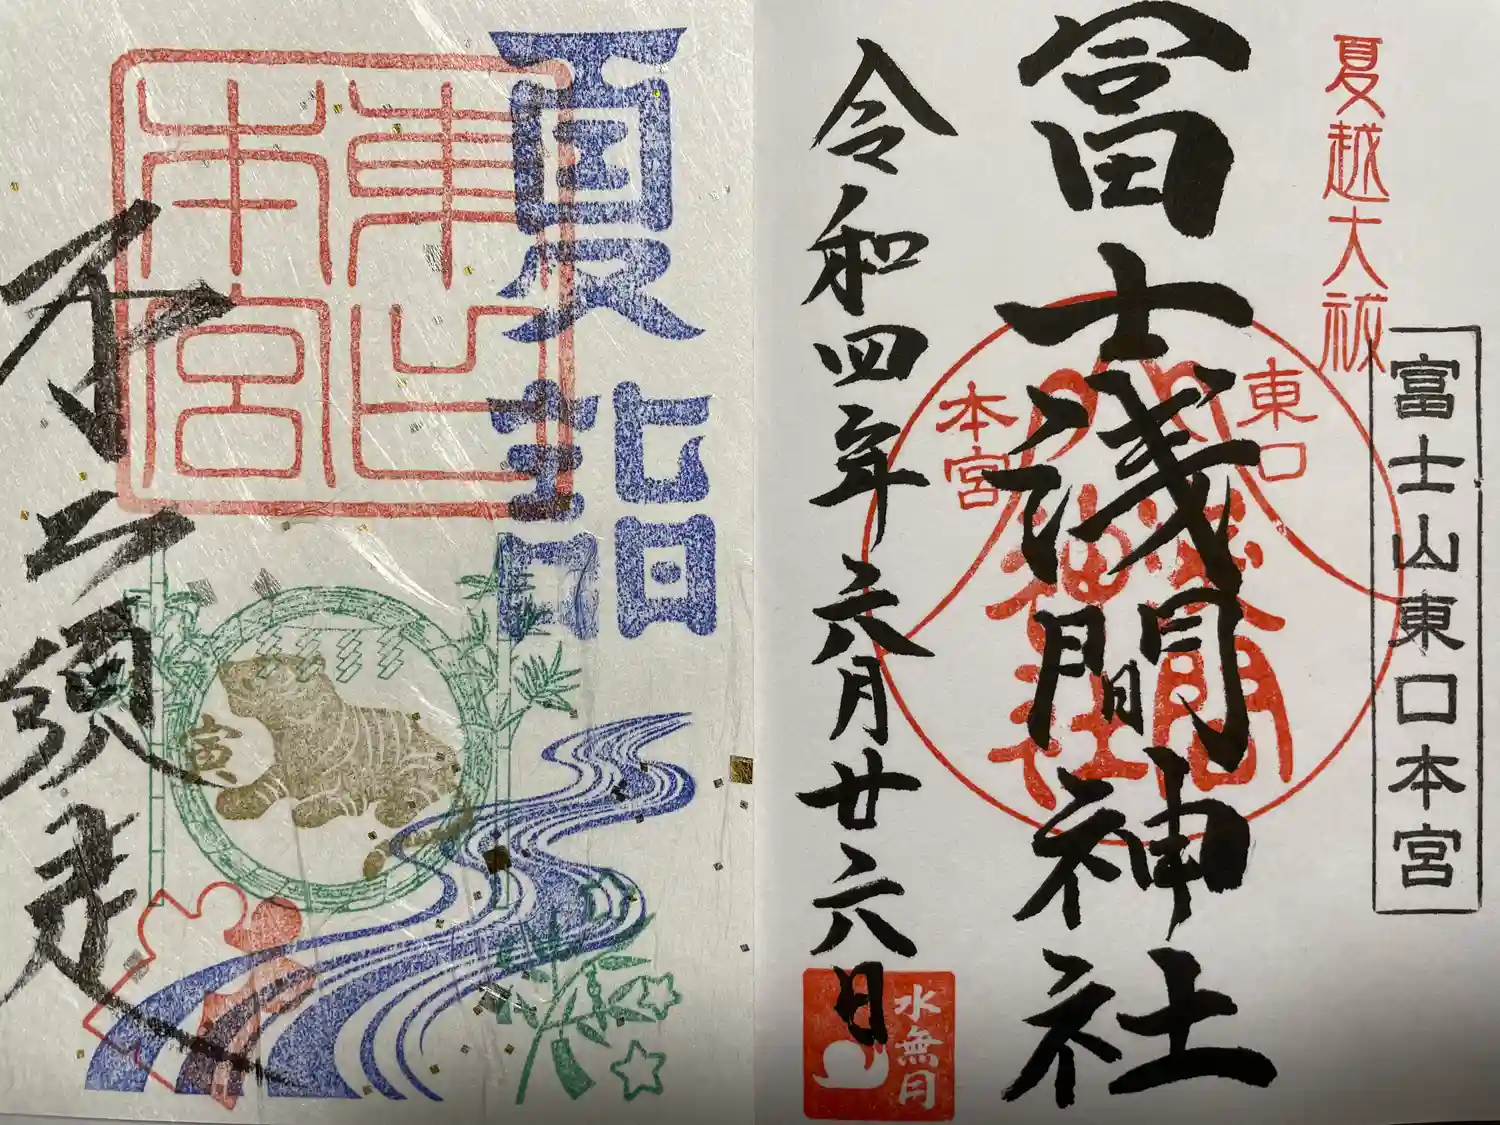 夏越大祓
富士山東口本宮
冨士浅間神社
東口
本宮
令和四年六月廿六日
水無月
夏詣
東口
本宮
不二須走
寅